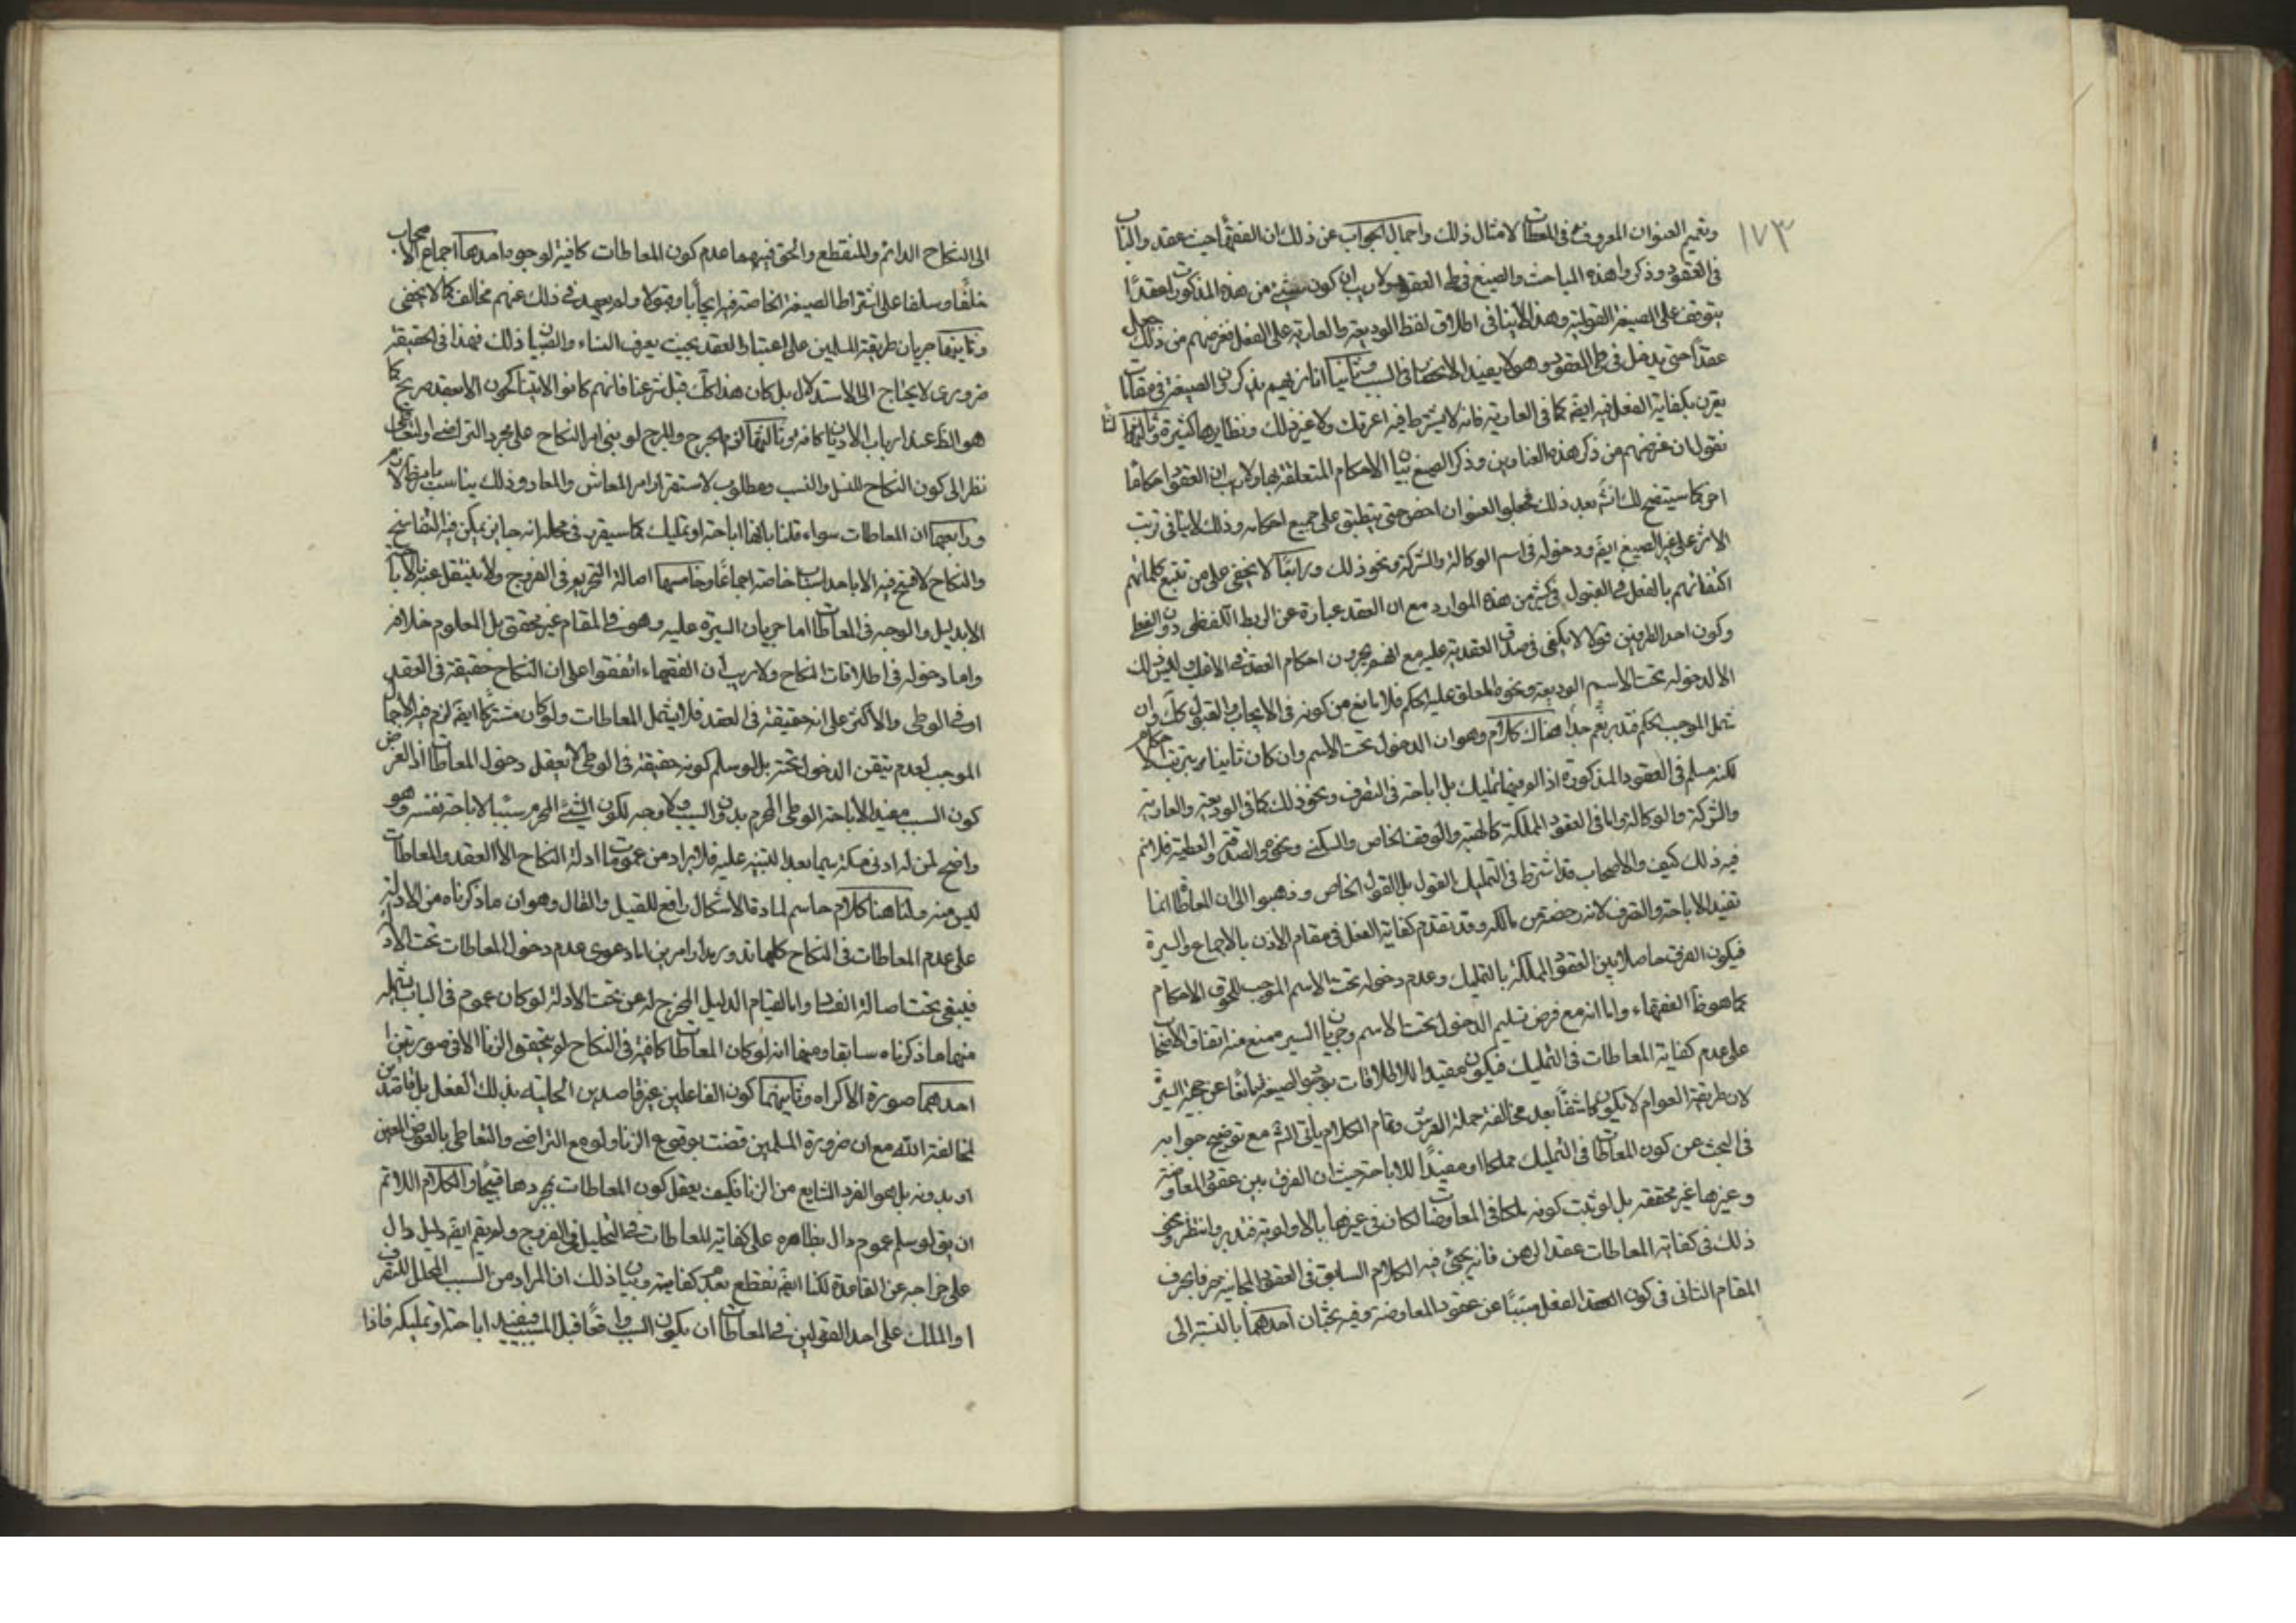 ١٧٣
وتعميم العنوان المعروف في المعاطات لامثال ذلك واجمال الجواب عن ذلك ان الفقهاء حيث عقدوا الباب
في العقود وذكروا هذه المباحث والصيغ في طي العقود ولا ريب ان كون شيء من هذه المذكورات عقدًا
يتوقف على الصيغة القولية وهذا لاينافي اطلاق لفظ الوديعة والعارية على الفعل فغرضهم من ذلك جعل
عقدًا حتى يدخل في طي العقود وهو لا يفيد الانحصار في السبب وثانيا انا نريهم يذكرون الصيغة في مقامات
يقرن بكفاية الفعل فيه ايضم كما في العارية فانه لا يشترط فيه اعرتك ولا غير ذلك ونظايرها كثيرة وثالثا انا
نقول ان غرضهم من ذكر هذه العناوين وذكر الصيغ بيان الاحكام المتعلقة بها ولا ريب ان للعقود احكامًا
اخر كما سيتضح لك انشم بعد ذلك فجعلوا العنوان اخص حتى ينطبق على جميع احكامه وذلك لاينافي ترتب
الاثر على غير الصيغ ايضم ودخوله في اسم الوكالة والشركة ونحو ذلك ورابعًا لا يخفى على من تتبع كلماتهم
اكتفائهم بالفعل في القبول في كثير من هذه الموارد مع ان العقد عبارة عن الربط اللفظي دون الفعلي
وكون احد الطرفين قولا لا يكفي في صدق العقدية عليه مع انهم يجرون احكام العقد في الاغلب وليس ذلك
الا لدخوله تحت الاسم الوديعة ونحوه المعلق عليه الحكم فلا مانع من كونه في الايجاب والقبول كك وان
شمل الموجب لحكم قد بر نعم جدا هناك كلام وهو ان الدخول تحت الاسم وان كان ثابتا يترتب الاحكام
لكنه مسلم في العقود المذكورة اذ الو فيها تمليك بل اباحة في التصرف ونحو ذلك كما في الوديعة والعارية
والشركة والوكالة واما في العقود المملكة كالهبة والوقف الخاص والسكنى ونحوه والصدقة والعطية فلا نم
فيه ذلك كيف والاصحاب قد اشترط في التمليك القول بل القول الخاص وذهبوا الى ان المعاطات انما
تفيد الاباحة والتصرف لانه رخصة من مالكه وقد تقدم كفاية الفعل في مقام الاذن بالاجماع والسيرة
فيكون الفرق حاصلا بين العقود المملكة بالتمليك وعدم دخوله تحت الاسم الموجب للحوق الاحكام
كما هو ظ الفقهاء واما انه مع فرض تسليم الدخول تحت الاسم وجريان السيرة ممنوع منه اتفاق الاصحاب
على عدم كفاية المعاطات في التمليك فيكون مقيدا للاطلاقات بوجوب الصيغة مانعًا عن حجية السيرة
لان طريقة العوام لا يكون كاشفًا بعد مخالفة حملة الشرع وتمام الكلام يأتي انشم مع توضيح جوابه
في البحث عن كون المعاطات في التمليك مملكا او مفيدًا للاباحة حيث ان الفرق بين عقود المعاوضة
وغيرها غير محققه بل لو ثبت كونه ملكا في المعاوضات لكان في غيرها بالاولوية فتدبر وانتظر ونحو
ذلك في كفاية المعاطات عقد الرهن فانه يجئ فيه الكلام السابق في العقود المجانية حرفا بحرف
المقام الثاني في كون الفعل مسببًا عن عقود المعاوضة وفيه بحثان احدهما بالنسبة الى
الى النكاح الدائم والمنقطع والحق فيهما عدم كون المعاطات كافية لوجوه احدها اجماع الاصحاب
خلفًا وسلفا على اشتراط الصيغة الخاصة فيه ايجابا وقبولا ولم يعهد في ذلك عنهم مخالف كما لا يخفى
وثانيها جريان طريقة المسلمين على اعتبار العقد بحيث يعرف النساء والصبيان ذلك فهذا في الحقيقة
ضروري لا يحتاج الى الاستدلال بل كان هذا كك قبل شرعنا فانهم كانوا لا يتناكحون الا بعقد صريح كما
هو الظ عند ارباب الاديان كافة وثالثها لزوم الهرج والمرج لو بني امر النكاح على مجرد التراضي او التعاطي
نظرا الى كون النكاح للنسل والنسب ومطلوب لاستقرار امر المعاش والمعاد وذلك يناسب
ورابعها ان المعاطات سواء قلنا بانها اباحة او تمليك كما سيقرر في محله انه جايز يمكن فيه التفاسخ
والنكاح لا فسخ فيه الا باحد اسباب خاصة اجماعًا وخامسها اصالة التحريم في الفروج ولا ينتقل عنه
الا بدليل والوجه في المعاطات اما جريان السيرة عليه وهو في المقام غير محقق بل المعلوم خلافه
واما دخوله في اطلاقات النكاح ولا ريب ان الفقهاء اتفقوا على ان النكاح حقيقة في العقد
او في الوطي والاكثر على انه حقيقة في العقد فلا يشمل المعاطات ولو كان مشتركًا ايضم لزم فيه الاجمال
الموجب لعدم تيقن الدخول تحته بل لو سلم كونه حقيقة في الوطي لا يعقل دخول المعاطات اذ الغرض
كون السبب مفيدا لاباحة الوطي المحرم بدون السبب ولا وجه لكون الشيء المحرم سببًا لاباحة نفسه وهو
واضح لمن له ادنى مسكة سيما بعد التنبيه عليه فلا يراد من عمومات ادلة النكاح الا العقد والمعاطات
ليس منه ولنا هنا كلام حاسم لمادة الاشكال رافع للقيل والقال وهو ان ما ذكرناه من الادلة
على عدم المعاطات في النكاح كلها تدور مدار امرين اما دعوى عدم دخول المعاطات تحت الادلة
فيبقى تحت اصالة الفساد واما لقيام الدليل المخرج له عن تحت الادلة لو كان عموم في الباب يشمله
منها ما ذكرناه سابقا ومنها انه لو كان المعاطات كافية في النكاح لم يتحقق الزنا الا في صورتين
احدهما صورة الاكراه وثانيهما كون الفاعلين غير قاصدين الحلية بذلك الفعل بل قاصدين
لمخالفة الله مع ان ضرورة المسلمين قضت بوقوع الزنا ولو مع التراضي والتعاطي بالعوض المعين
او بدونه بل هو الفرد الشايع من الزنا فكيف يعقل كون المعاطات بمجردها والكلام اللائم
ان يق لو سلم عموم دال بظاهره على كفاية المعاطات في التحليل في الفروج ولم يقم ايضم دليل دال
على خراجه عن القاعدة لكنا ايضم نقطع بعدم كفايته وبيان ذلك ان المراد من السبب المحلل للتصرف
او الملك على احد القولين في المعاطات ان يكون السبب واقعًا قبل المسبب فيفيد اباحته او تمليكه فاذا